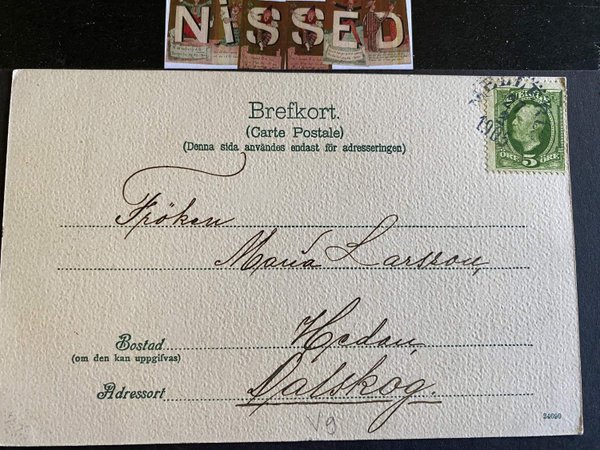 NISSED
Brefkort.
(Carte Postale)
(Denna sida användes endast för adresseringen)
SVERIGE
5
ÖRE ÖRE
Fröken
Maria Larsson,
Hedan,
Bostad
(om den kan uppgifvas)
Dalskog.
Adressort
24690
V9